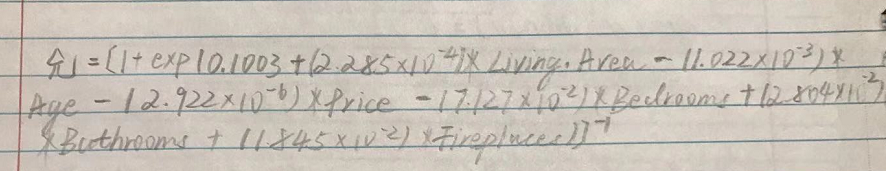 π̂₁ = [1 + exp(0.1003 + (2.285×10⁻⁴)* Living.Area - (1.022×10⁻³)*
Age - (2.922×10⁻⁶)×Price - (7.127×10⁻²)×Bedrooms + (2.804×10⁻²)
×Bathrooms + (1.845×10⁻²)×Fireplaces)]⁻¹